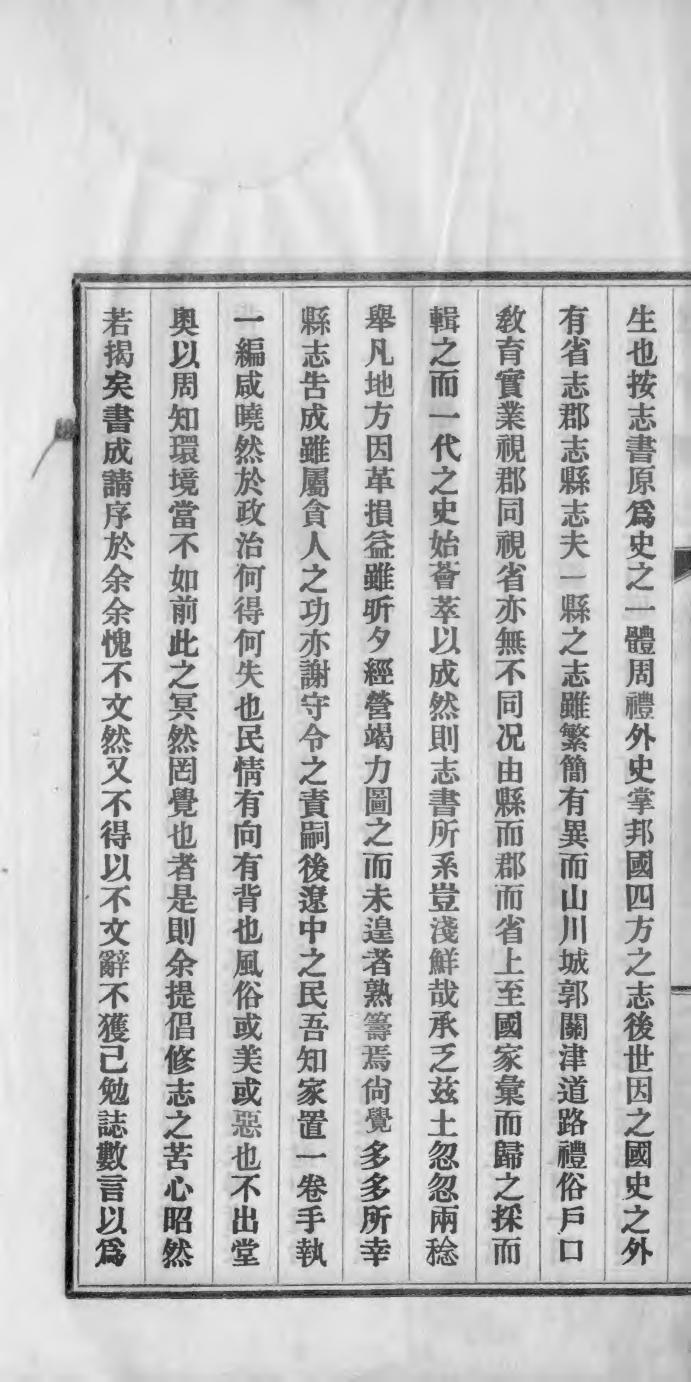 生也按志書原爲史之一體周禮外史掌邦國四方之志後世因之國史之外
有省志郡志縣志夫一縣之志雖繁簡有異而山川城郭關津道路禮俗戶口
敎育實業視郡同視省亦無不同况由縣而郡而省上至國家彙而歸之採而
輯之而一代之史始薈萃以成然則志書所系豈淺鮮哉承乏玆土忽忽兩稔
舉凡地方因革損益雖昕夕經營竭力圖之而未遑者熟籌焉尙覺多多所幸
縣志吿成雖屬貪人之功亦謝守令之責嗣後遼中之民吾知家置一卷手執
一編咸曉然於政治何得何失也民情有向有背也風俗或美或惡也不出堂
奧以周知環境當不如前此之冥然罔覺也者是則余提倡修志之苦心昭然
若揭矣書成請序於余余愧不文然又不得以不文辭不獲已勉誌數言以爲